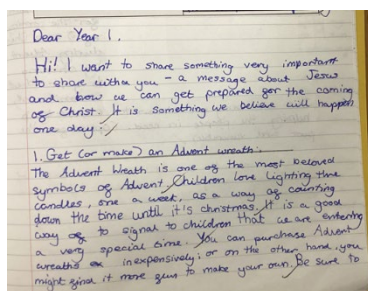 Dear Year 1.
Hi! I want to share something very important
to share with you - a message about Jesus
and how we can get prepared for the coming
of Christ. It is something we believe will happen
one day.
1. Get (or make) an Advent wreath.
The Advent Wreath is one of the most beloved
symbols of Advent. Children love lighting the
candles, one a week, as a way of counting
down the time until it's christmas. It is a good
way to signal to children that we are entering
a very special time. You can purchase Advent
wreaths inexpensively; or on the other hand, you
might find it more fun to make your own. Be sure to